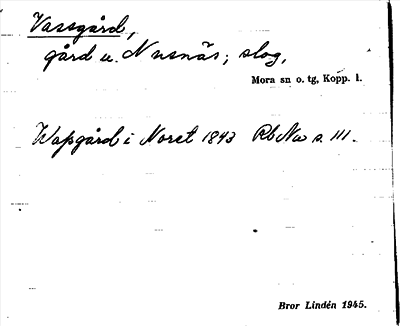 Vassgård,
gård u. Nusnäs; slog.
Mora sn o. tg, Kopp. l.
Wassgård i Noret 1843 Rb No s. 111.
Bror Lindén 1945.